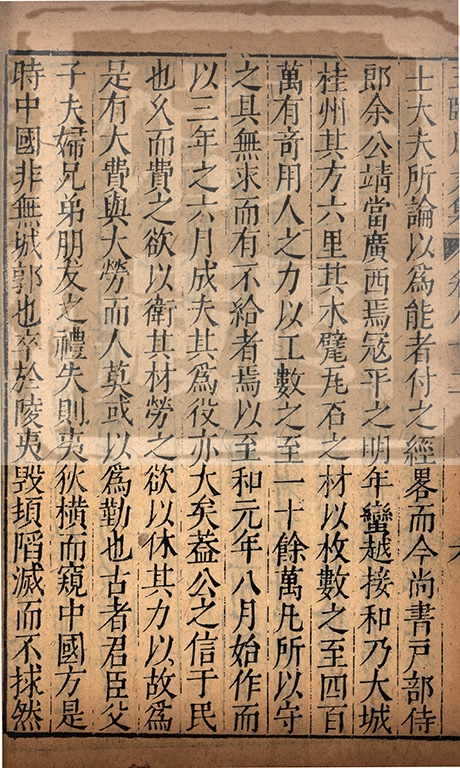 士大夫所論以爲能者付之經畧而今尚書戸部侍
郎余公靖當廣西焉冦平之明年蠻越接和乃大城
桂州其方六里其木甓瓦石之材以枚數之至四百
萬有竒用人之力以工數之至一十餘萬凡所以守
之具無求而有不給者焉以至和元年八月始作而
以三年之六月成夫其爲役亦大矣葢公之信于民
也乆而費之欲以衛其材勞之欲以休其力以故爲
是有大費與大勞而人莫或以爲勤也古者君臣父
子夫婦兄弟朋友之禮失則夷狄橫而窺中國方是
時中國非無城郭也卒於陵夷毁頓陷滅而不捄然